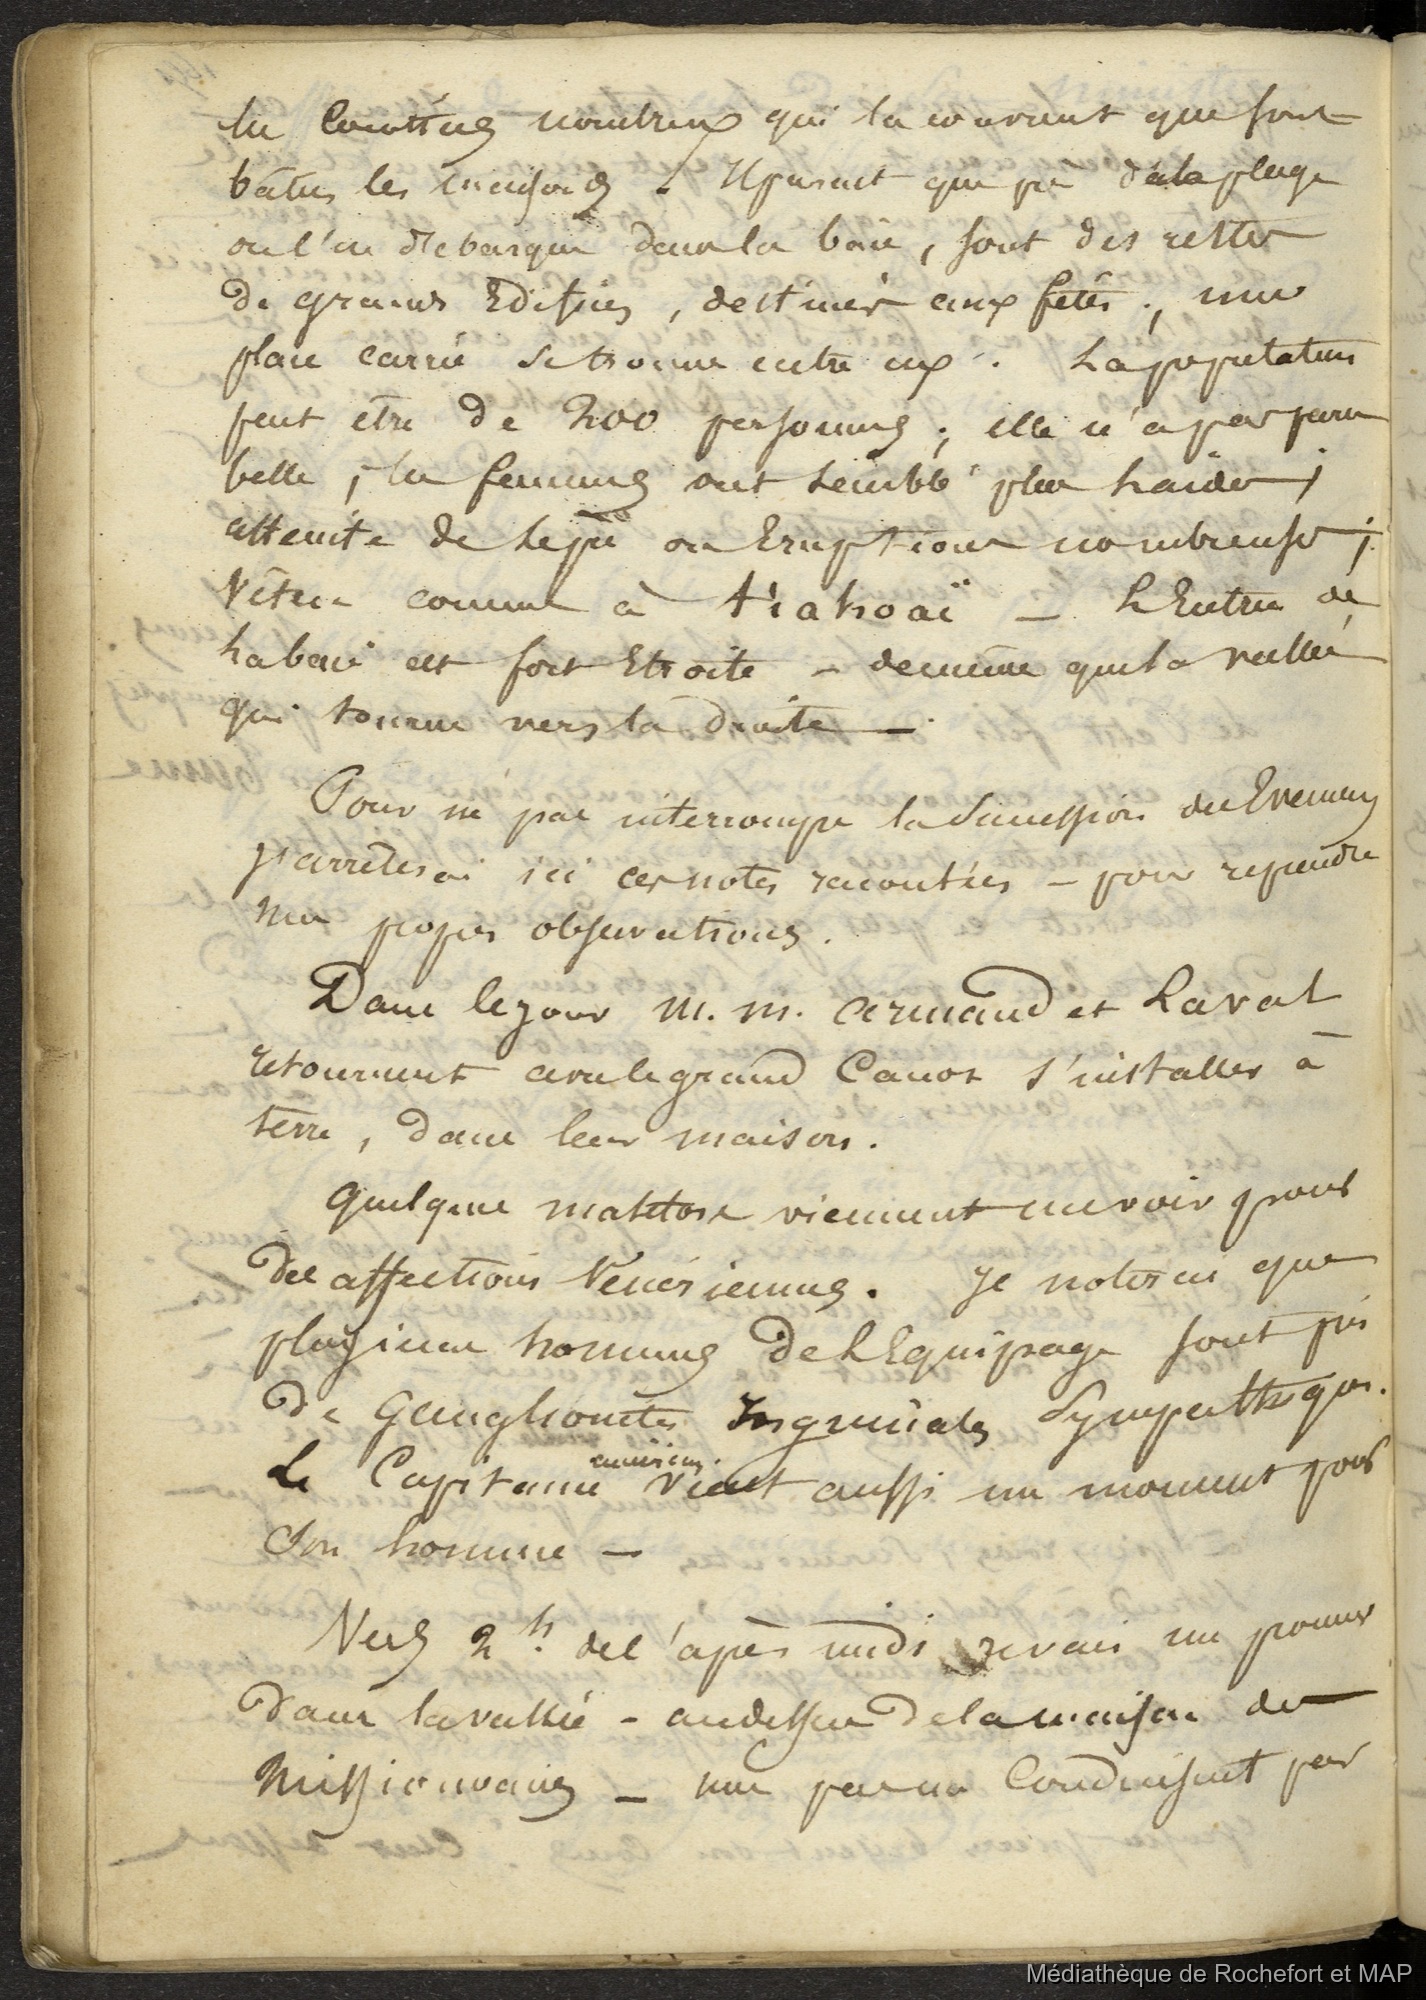 les cocotiers nombreux qui la couvrent que sont
bâties les maisons. Il parait que près de la plage
ou l'on débarque dans la baie, sont des restes
de grands Edifices, destinés aux fêtes; une
place carrée se trouve entre eux. La population
peut être de 200 personnes; elle n'a pas paru
belle; les femmes ont semblé plus laides;
atteinte de lèpre ou Eruptions nombreuses;
Vêtue comme à — L'Entrée de
la baie est fort Etroite — de même que la vallée
qui tourne vers la droite —
Pour ne pas interrompre la Succession des Evenemens
j'arrêterai ici ces notes racontées — pour reprendre
mes propres observations.
Dans le jour M. M. Armand et Laval
retournent avec le grand Canot s'installer à
terre, dans leur maison.
Quelques matelots viennent me voir pour
des affections Vénériennes. Je noterai que
plusieurs hommes de l'Equipage sont pris
de Ganglionites Inguinales Sympathiques.
Le Capitaine américain vient aussi un moment pour
son homme —
Vers 2 h. de l'après midi je vais me promener
dans la vallée — au dessus de la maison des
Missionnaires — me conduisent par
Médiathèque de Rochefort et MAP